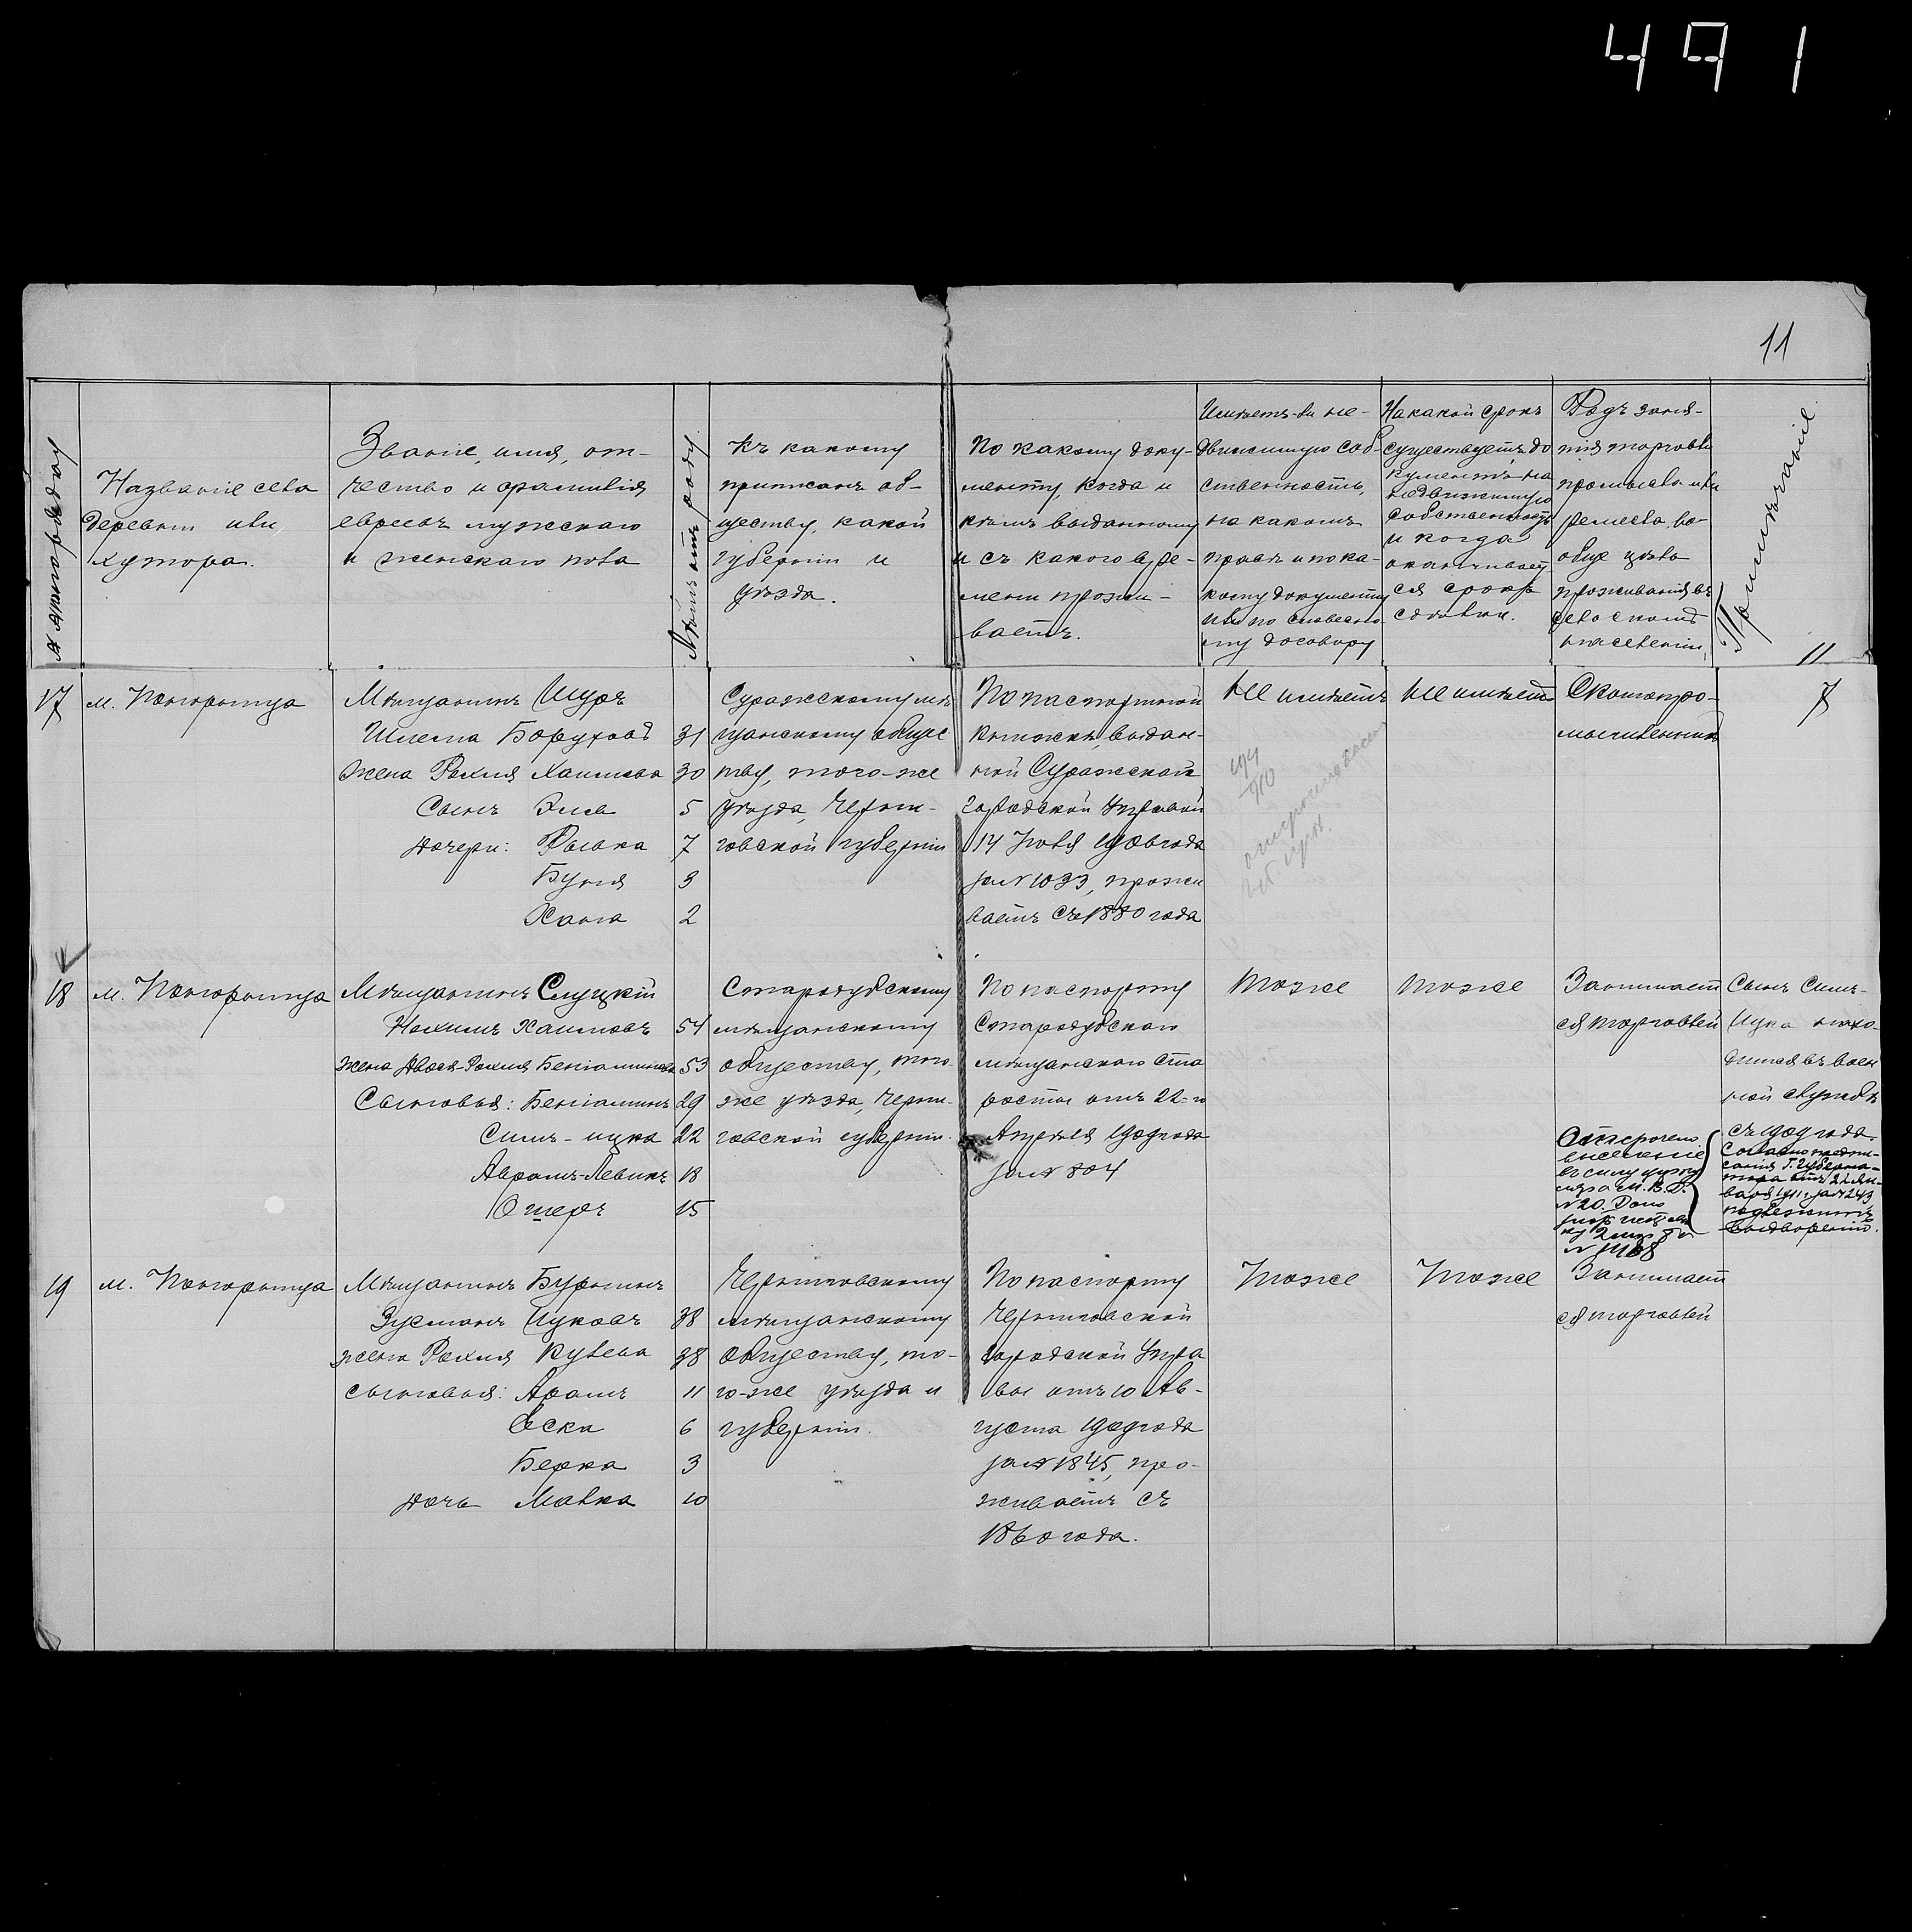 491
11
№ по порядку
Названіе села
деревни или
хутора.
Званіе, имя, от-
чество и фамилія
евреевъ мужского
и женскаго пола
Лѣтъ отъ роду
Къ какому
приписанъ об-
ществу, какой
губерніи и
уѣзда.
По какому доку-
менту, когда и
кѣмъ выданному
и съ какого вре-
мени прожи-
ваетъ.
Имѣетъ-ли не-
движимую соб-
ственность,
на какомъ
правѣ и по ка-
кому документу
или по словесно
му договору
На какой срокъ
существуетъ до
кументъ на
недвижимую
собственность
и когда
оканчивает
ся срокъ
сдѣлки.
Родъ заня-
тія торговли
промысла или
ремесла, во-
обще цѣль
проживанія въ
сельскомъ
населеніи,
Примѣчаніе
11
17
м. Понорница
Мѣщанинъ Шуръ
Шлема Боруховъ 31
жена Рахиля Хаимова 30
Сынъ Эля 5
дочери: Рывка 7
Буня 3
Хана 2
Суражскому мѣ
щанскому общес
тву, того-же
уѣзда, Черни-
говской губерніи
По паспортной
книжкѣ, выдан-
ной Суражской
городской Управой
14 Іюля 1908 года
за № 1033, прожи
ваетъ съ 1880 года
Не имѣетъ
Не имѣетъ
Скотопро-
мышленникъ
7
18
м. Понорница
Мѣщанинъ Слуцкій
Нохимъ Хаимовъ 54
жена Двося-Рахиля Беніаминова 53
Сыновья: Беніаминъ 29
Симъ-ицка 22
Аврамъ-Левикъ 18
Ошеръ 15
Стародубскому
мѣщанскому
обществу, того
же уѣзда, Черни-
говской губерніи.
По паспорту
Стародубскаго
мѣщанскаго ста
росты отъ 22-го
Апрѣля 1909 года
за № 804
Тоже
Тоже
Занимает
ся торговлей
Отсрочено
выселеніе
въ силу цирку
ляра М.В.Д.
№ 20.
Сынъ Симъ-
Ицка нахо-
дится въ воен
ной службѣ
съ 1909 года.
Согласно предпи-
санія Г. Губерна-
тора отъ 22 Ян-
варя 1911 г. за № 243
подлежитъ
выдворенію.
19
м. Понорница
Мѣщанинъ Бурминъ
Зусманъ Ицковъ 38
жена Рахиля Кулева 38
сыновья: Абрамъ 11
Еска 6
Берка 3
дочь Малка 10
Черниговскому
мѣщанскому
обществу, то-
го-же уѣзда и
губерніи.
По паспорту
Черниговской
городской Упра
вы отъ 10 Ав-
густа 1909 года
за № 1845, про-
живаетъ съ
1860 года.
Тоже
Тоже
Занимает
ся торговлей